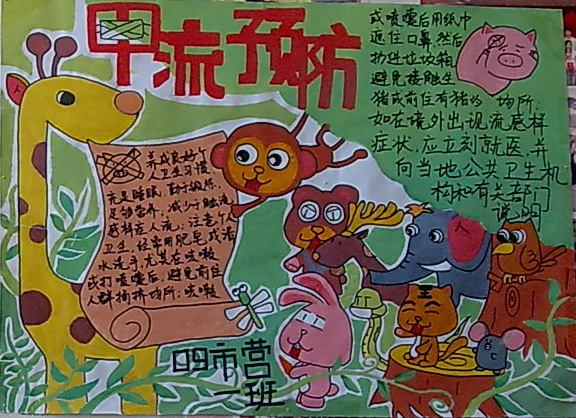 甲流预防
养成良好个
人卫生习惯
充足睡眠、勤于锻炼、
足够营养、减少
人流，注意个人
卫生，经常用肥皂或清
水洗手尤其在咳嗽
或打喷嚏后，避免前往
人群拥挤场所；咳嗽
或喷嚏后用纸巾
遮住口鼻，然后
扔进垃圾箱
避免接触生
猪或前住有猪的场所.
如在境外出现流感样
症状，应立刻就医，并
向当地公共卫生机
构和有关部门
说明
09市营
一班